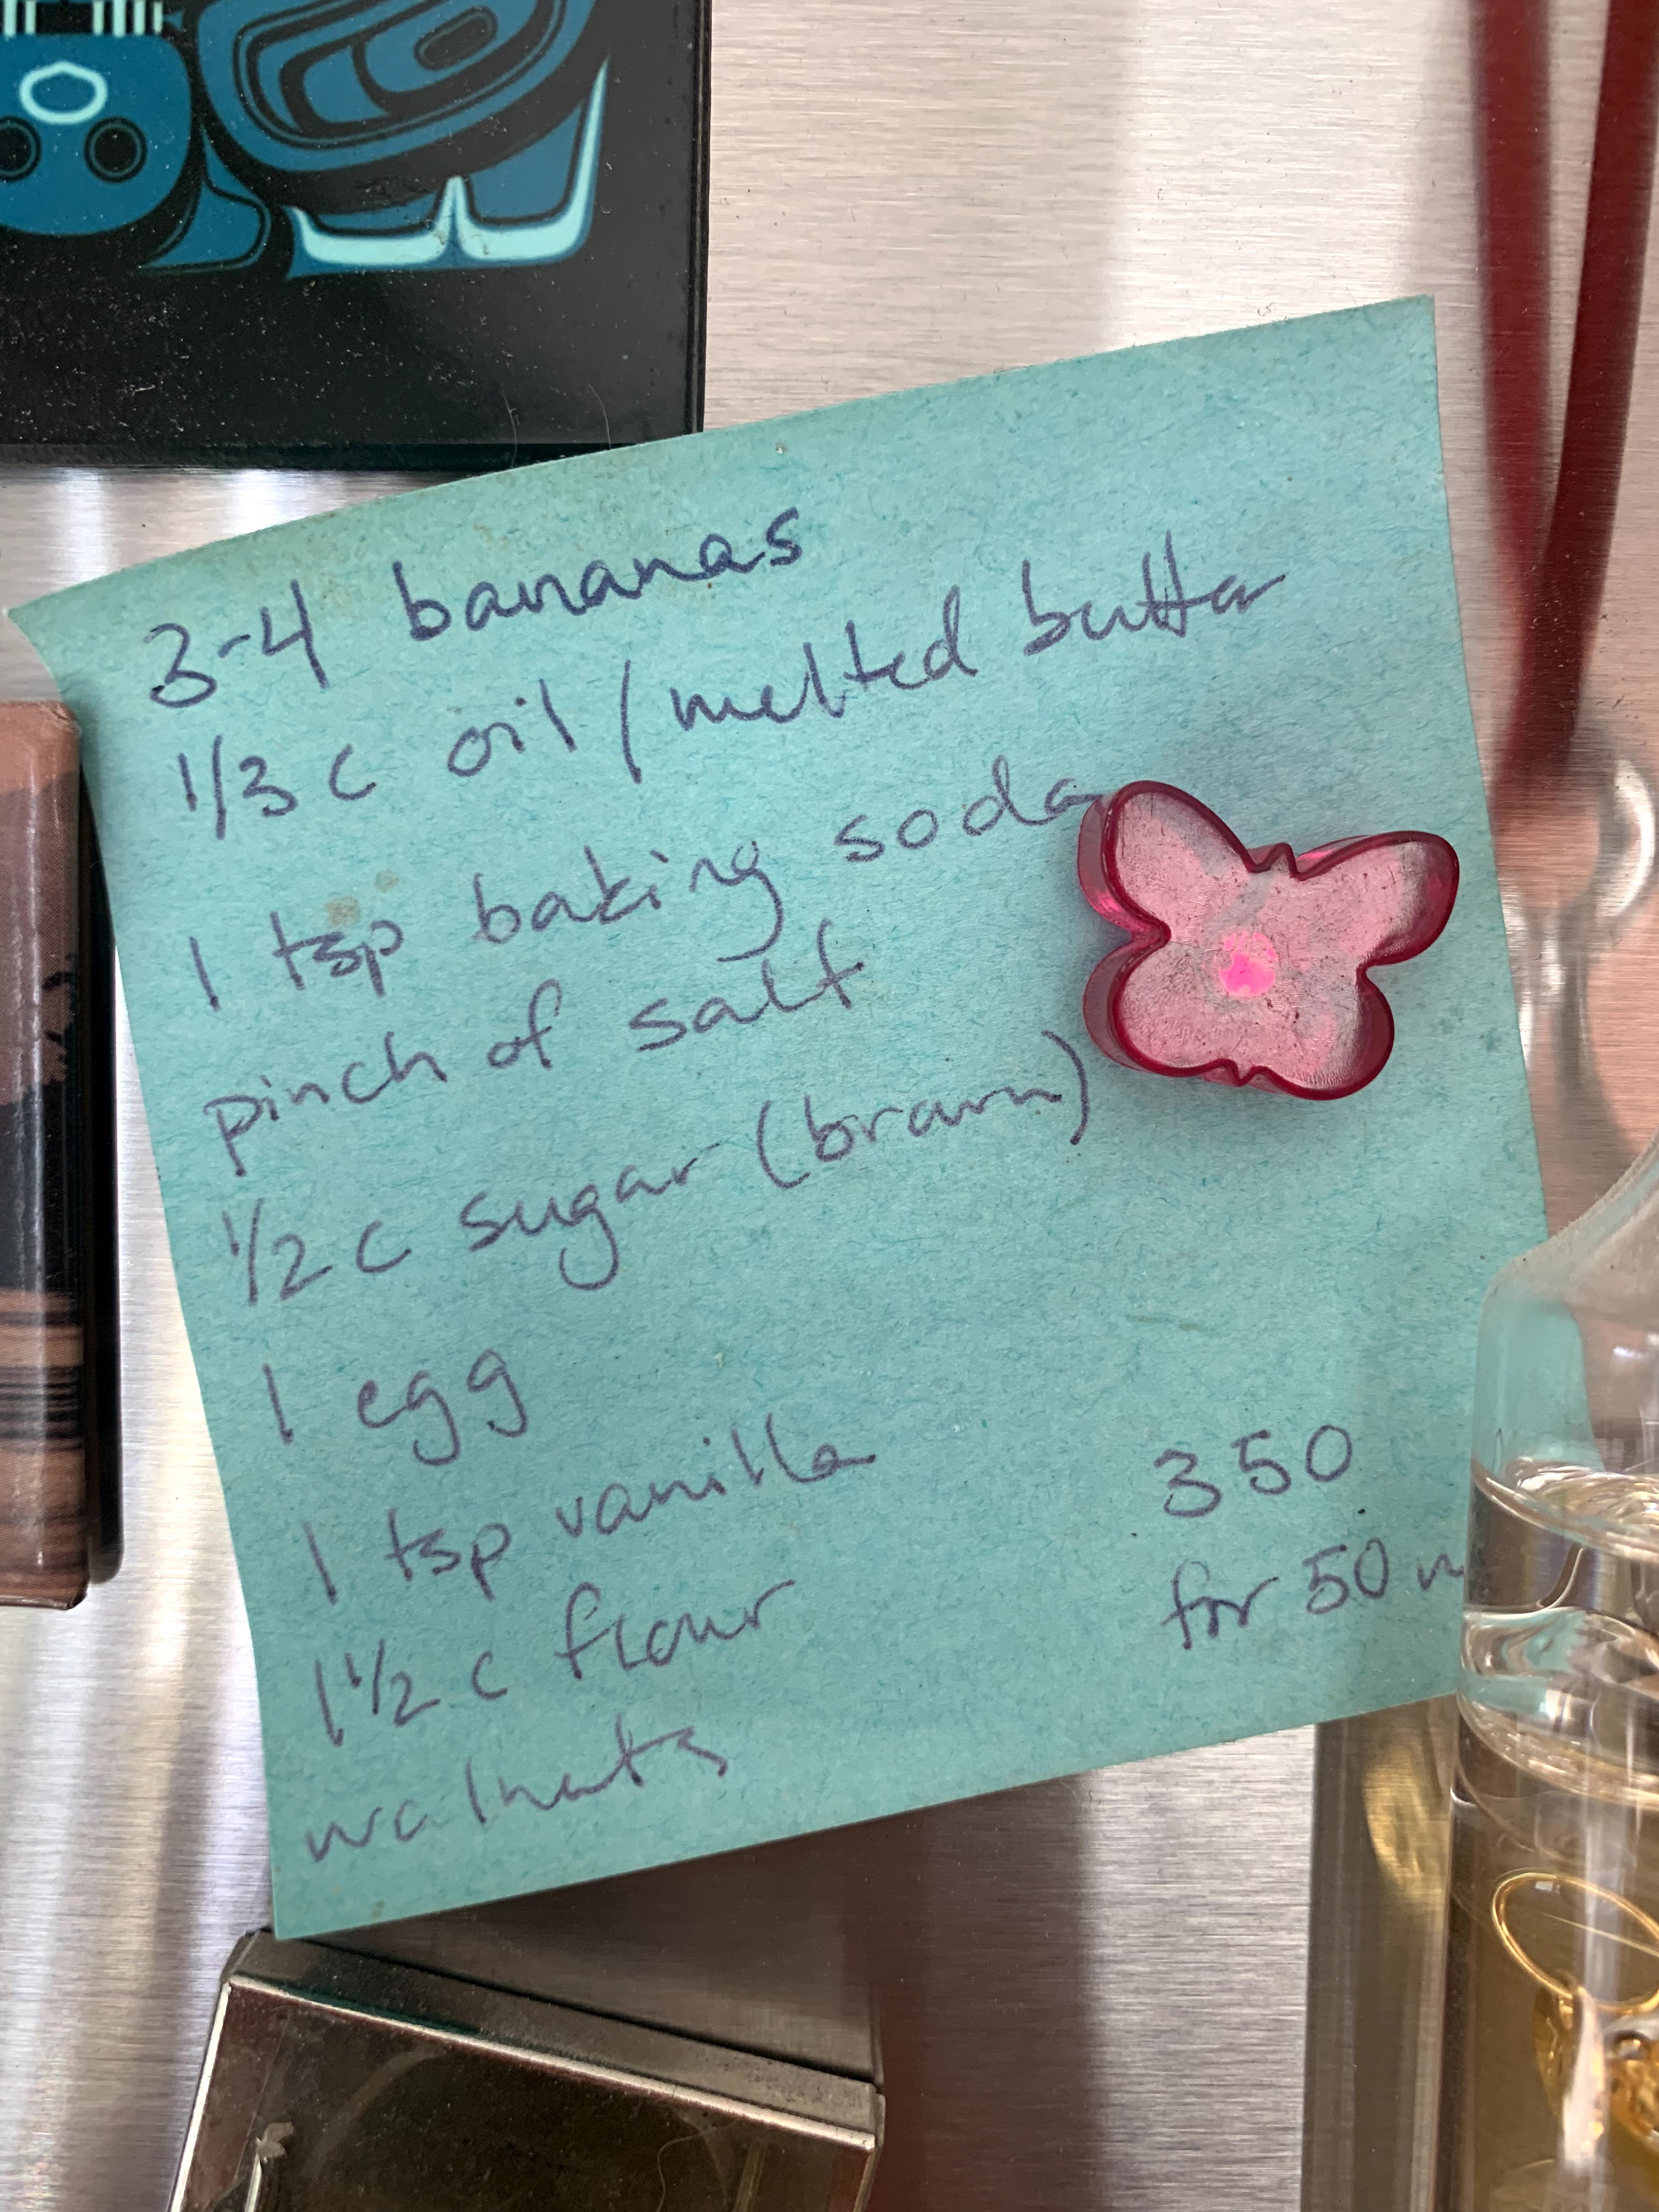 3-4 bananas
1/3 c oil / melted butter
1 tsp baking soda
pinch of salt
1/2 c sugar (brown)
1 egg
1 tsp vanilla
1 1/2 c flour
walnuts
350
for 50